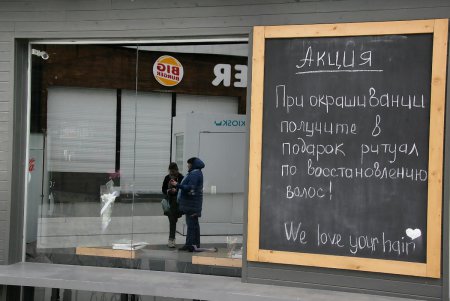 BIG
BURGER
KIOSK
Акция
При окрашивании
получите в
подарок ритуал
по восстановлению
волос!
We love your hair